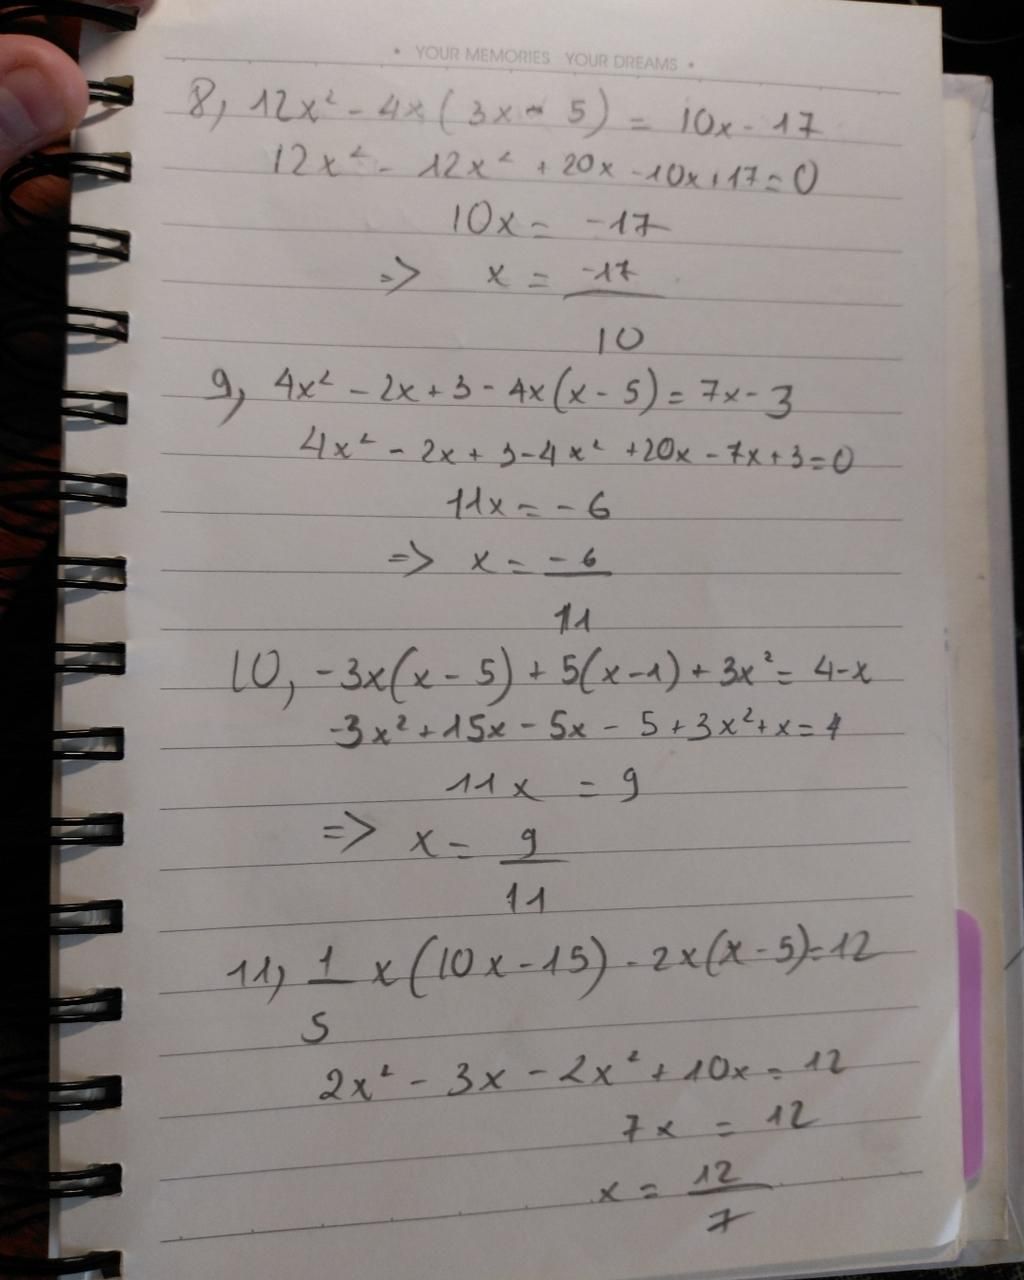 • YOUR MEMORIES YOUR DREAMS •
8, 12x² - 4x (3x - 5) = 10x - 17
12x² - 12x² + 20x - 10x + 17 = 0
10x = -17
=> x = -17
10
9, 4x² - 2x + 3 - 4x(x - 5) = 7x - 3
4x² - 2x + 3 - 4x² + 20x - 7x + 3 = 0
11x = - 6
=> x = - 6
11
10, -3x(x - 5) + 5(x - 1) + 3x² = 4-x
-3x² + 15x - 5x - 5 + 3x² + x = 4
11x = 9
=> x = 9
11
11, 1 x (10x - 15) - 2x(x - 5) = 12
5
2x² - 3x - 2x² + 10x = 12
7x = 12
x = 12
7